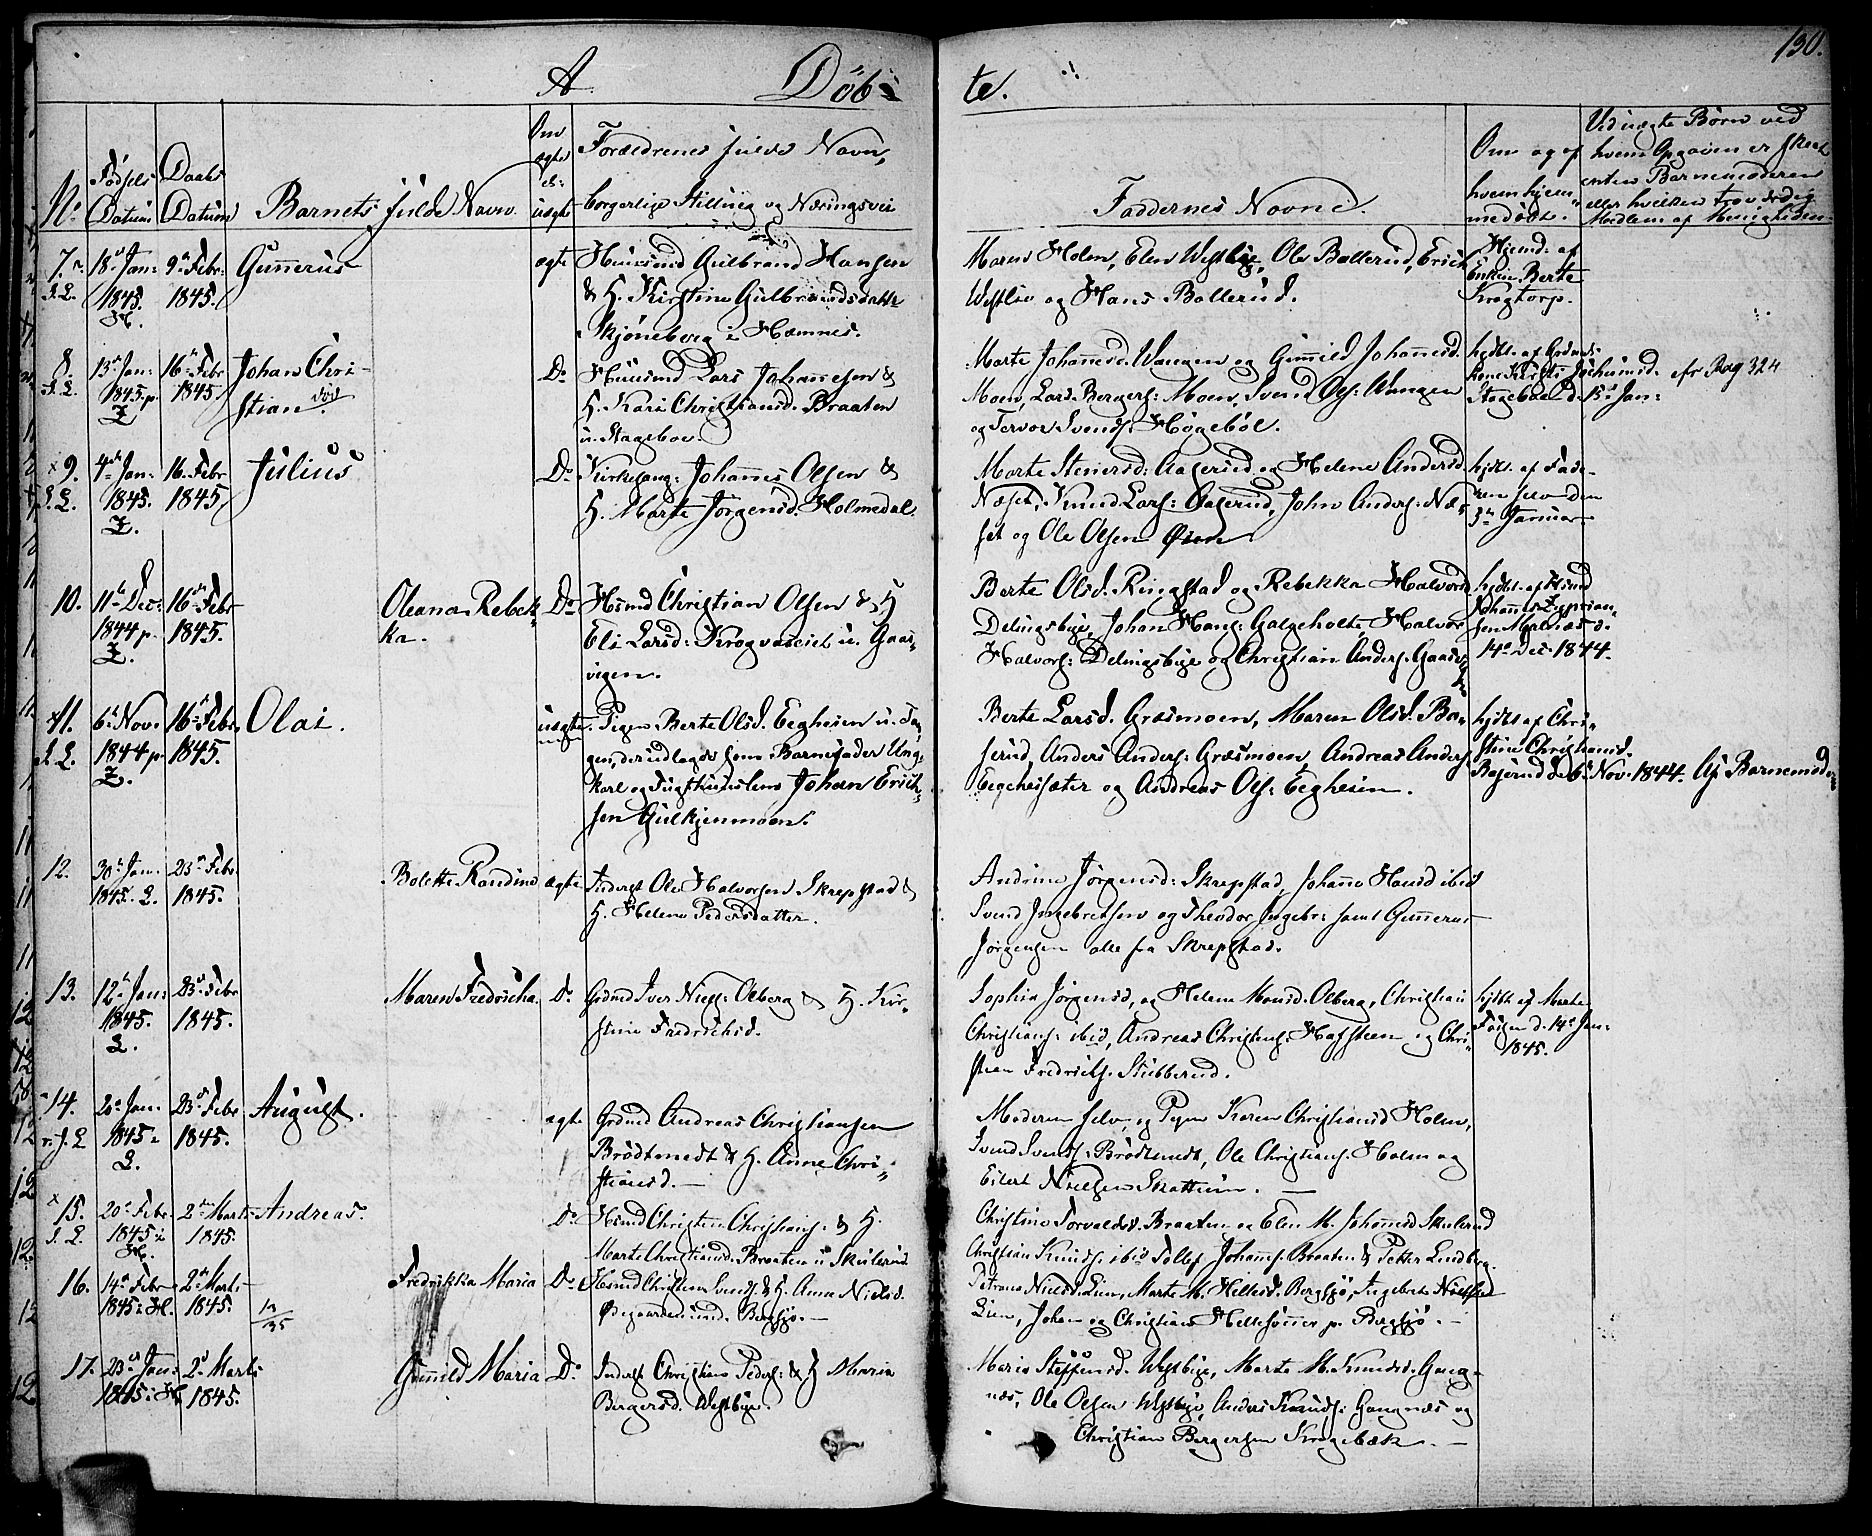 130.
A. Döb- te.
No
Fødsels Datum
Daabs Datum
Barnets fulde Navn.
Om ægte el: uægte
Forældrenes fulde Navn,
borgerlige Stilling og Næringsvei
Faddernes Navne.
Om og af hvem hjemmedöbt.
Ved uægte Børn ved
hvem Opgaven er skeet
enten Barnemoderen
eller hvilken troværdig
Medlem af Menigheden.
7. 18de Jan: 9de Febr: Gunnerus ægte Huusmd Gulbrand Hansen
1845. 1845. & H. Kirstine Gulbrandsdatter
H. Skjöneberg i Hæmnes.
Maren Holm, Elen Westbye, Ole Bollerud, Erich
Westlie og Hans Bollerud.
Hjemd: af
Enken Berte
Krogtorp.
8. 13de Jan: 16de Febr Johan Chri- Do Huusmd Lars Johannesen &
1845. p. 1845 stian. död H. Kari Christiansd. Braaten
Z u. Stageboe
Marte Johannesd. Wangen og Gunild Johannesd.
Moen, Lars Bergers: Moen, Svend Ols: Wangen
og Torvor Svends. Högeböl.
hjdbt. af Grdmds
Kone Kirsti Jochumsd.
Stageboe d. 15de Jan:
cfr Pag 324
9. 4de Jan: 16. Febr Julius Do Kirkesang: Johannes Olsen &
1845. 1845. H. Marte Jörgensd. Holmedal.
Z.
Marte Stenersd: Aaserud og Helene Andersd
Næset, Knud Lars: Aaserud, John Anders: Næ-
set og Ole Olsen Øren
hjdbt. af Fade-
ren selv den
5te Januar
10. 11te Dec: 16de Febr Oleana Rebek- Do Husmd Christian Olsen & H
1844 p. 1845. ka. Eli Larsd: Krogvasseiet u. Gaas-
Z. vigen.
Berte Olsd. Ringstad og Rebekka Halvorsd
Delingsbye, Johan Hans: Galgeholte, Halvor
Halvors: Delingsbye og Christian Anders. Gaasv
hjdbt. af Husmd
Johannes Zyprian-
sen Melnæs d.
14de Dec. 1844.
11. 6te Nov. 16de Febr. Olai. uægte. Pigen Berte Olsd. Eegheien u. Ta-
1844 p. 1845. gen, der udlagde som Barnefader Ung-
Z. karl og Tugthuuslem Johan Erich-
sen Gulkjenmoen.
Berte Larsd. Græsmoen, Maren Olsd. Ba-
serud, Anders Anders: Græsmoen, Andreas Anders
Eegehesæter og Andreas Ols: Eegheien.
hjdbt. af Chri-
stine Christiansd.
Baserud d. 6te Nov. 1844. Af Barnemod
12. 30te Jan. 23de Febr. Bolette Randine ægte Inderst Ole Halvorsen Skrepstad &
1845. L. 1845. H. Helene Pedersdatter.
Andrine Jörgensd: Skrepstad, Johanne Hansd ibid
Svend Ingebretsen og Theodor Ingebr: samt Gunnerus
Jörgensen alle fra Skrepstad.
13. 12te Jan: 23de Febr Maren Fredrischa. Do. Grdmd Iver Niels: Olberg & H. Kir-
1845. 1845. stine Fredrichsd.
L.
Sophia Jörgensd, og Helene Monsd. Olberg, Christian
Christians: ibid, Andreas Christians: Hafsteen og Chri-
stian Fredriks. Stubberud.
hjdbt af Marte
Foss d. 14de Jan:
1845.
14. 20de Jan. 23de Febr August. ægte Grdmd Andreas Christiansen
1845. 1845. Brödtmedt & H. Anne Chri-
L. stiansd. —
Moderen selv, og Pigen Karen Christiansd Holm,
Svend Svends: Brödtmedt, Ole Christians. Holm og
Eilert Nielsen Skattum. —
15. 20de Febr. 2den Marts Andreas. Do. Husmd Christen Christians: & H.
1845 i 1845. Marte Christiansd. Braaten u Skulerud
H.
Christine Torvaldsd. Braaten og Elen M. Johannesd Skulerud
Christian Knuds. ibid Tollef Johanns. Braaten & Petter Lindberg.
16. 14de Febr 2den Marts Fredrikka Maria Do. Husmd Christian Svends. & H. Anne Nielsd.
1845 i H. 1845. Ødegaarden und. Bergsjø. —
Petrine Nielsd. Lien, Marte M. Hellesd. Bergsjö, Ingebret Nielsen
Lien, Johan og Christian Hellesönner p. Bergsjö. —
17. 23de Jan: 2den Marts Gunild Maria Do. Inderst Christian Peders: & H Maria
1845 i H. 1845. Bergersd. Westbye.
Maria Steffensd. Westbye, Marte M. Knudsd. Gang-
næs, Ole Olsen Westbye, Anders Knuds: Gangnæs og
Christian Bergersen Krogebæk. —